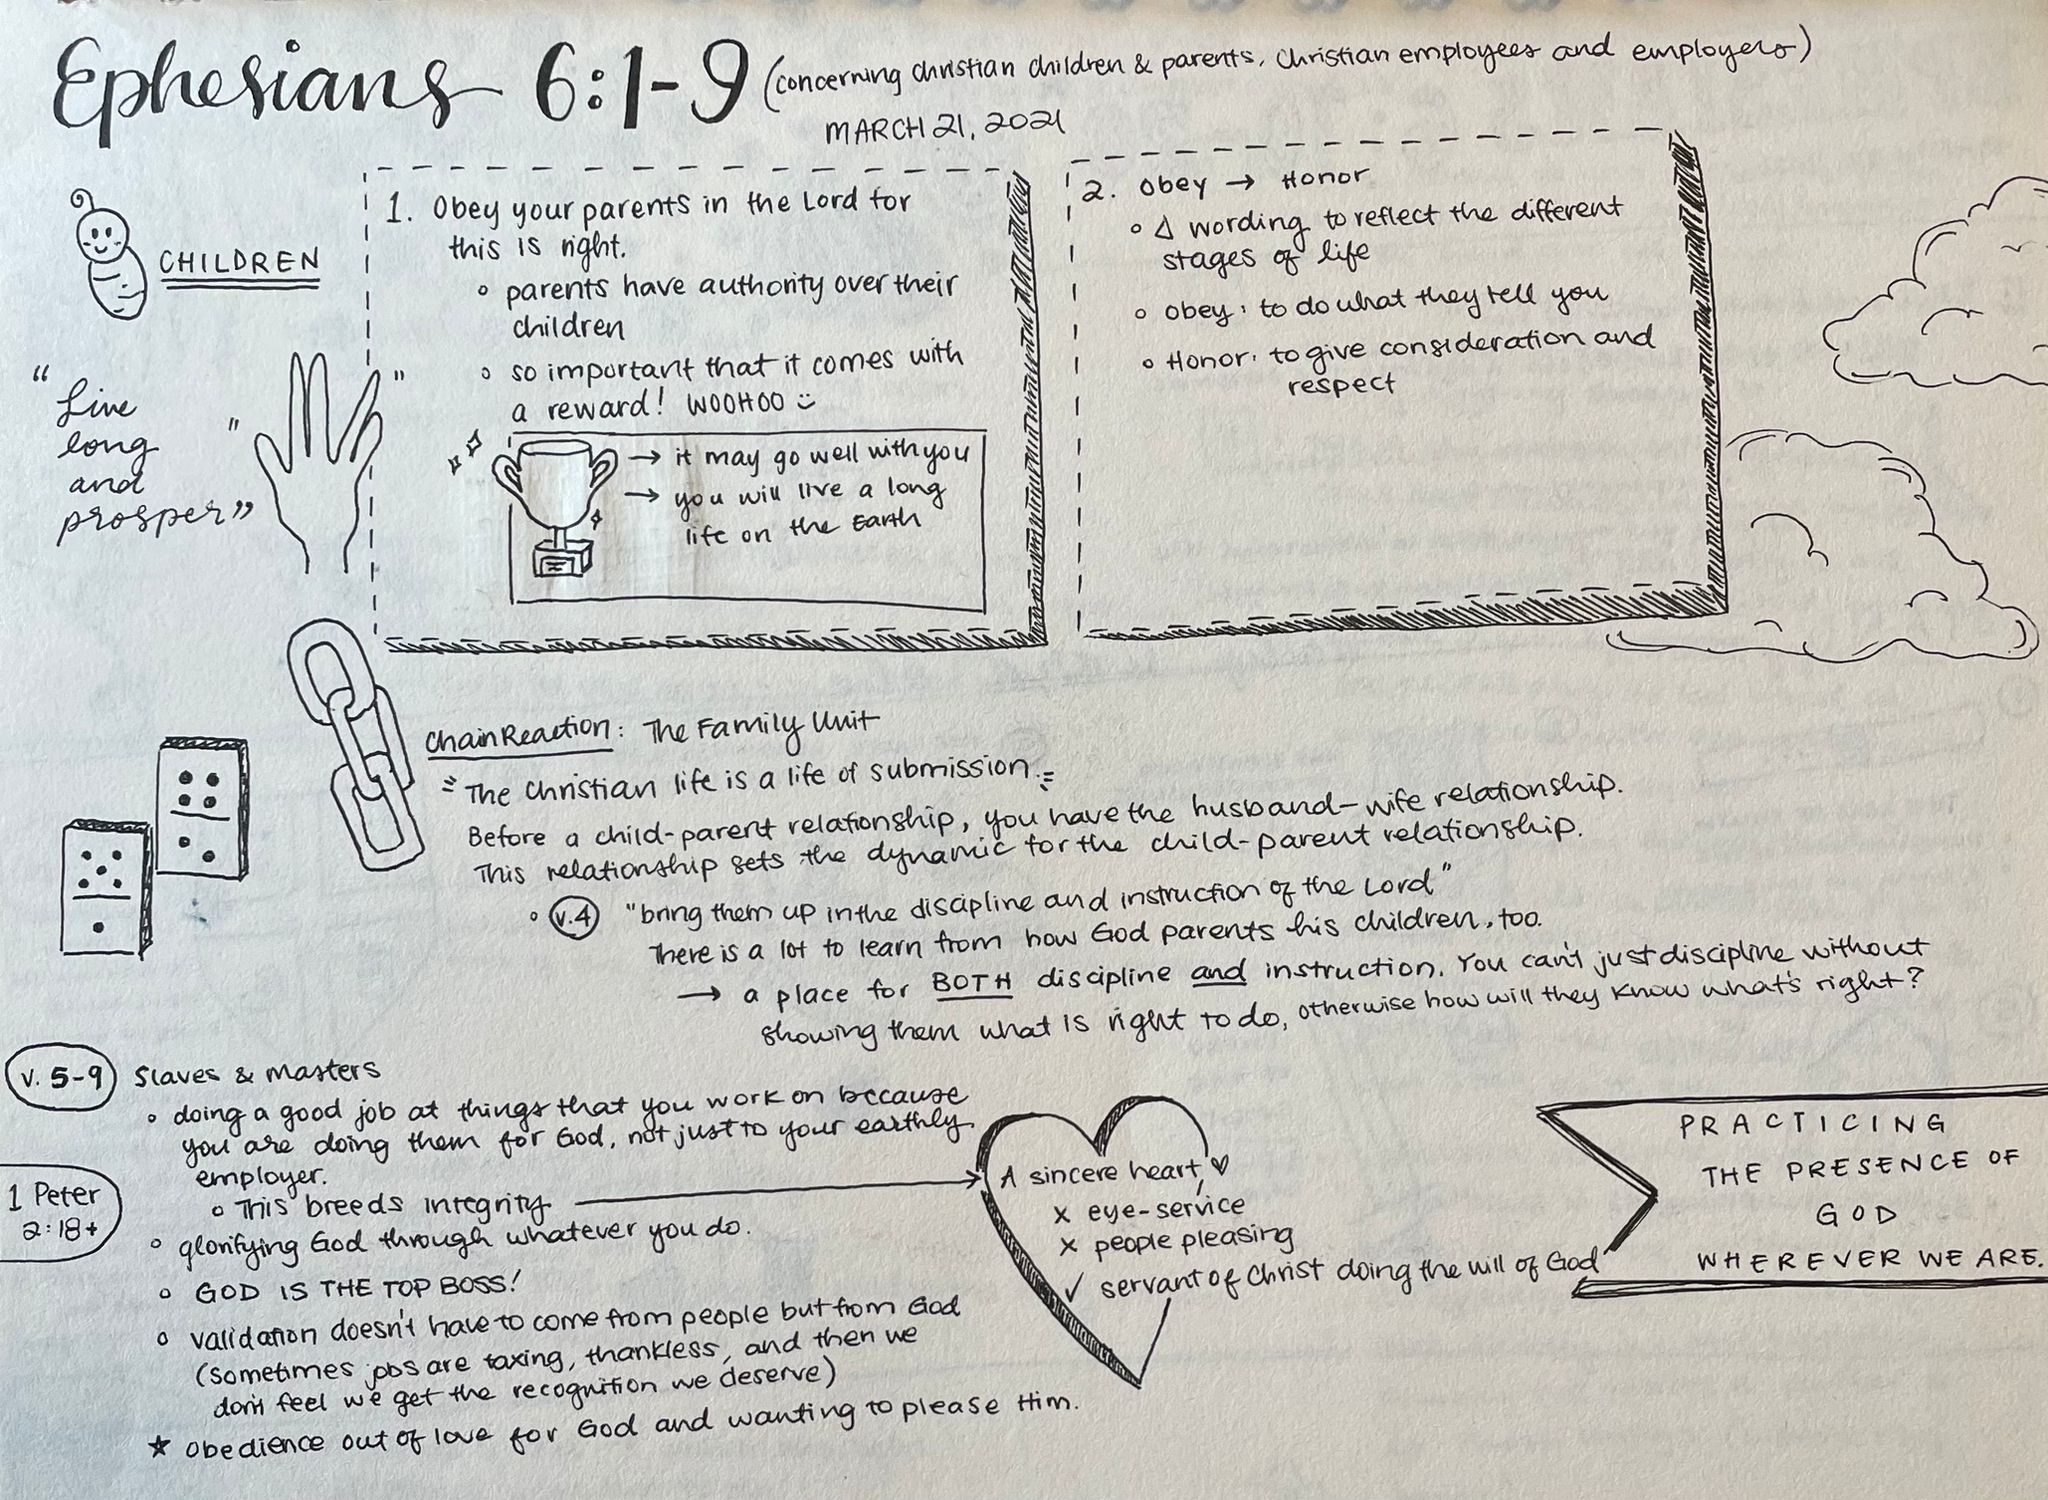 Ephesians 6:1-9 (concerning christian children & parents, Christian employees and employers)
MARCH 21, 2021
CHILDREN
"Live
long
and
prosper"
" "
1. Obey your parents in the Lord for
this is right.
◦ parents have authority over their
children
◦ so important that it comes with
a reward! WOOHOO :)
→ it may go well with you
→ you will live a long
life on the Earth
2. Obey → Honor
◦ Δ wording to reflect the different
stages of life
◦ Obey: to do what they tell you
◦ Honor: to give consideration and
respect
Chain Reaction: The Family Unit
"The Christian life is a life of submission."
Before a child-parent relationship, you have the husband-wife relationship.
This relationship sets the dynamic for the child-parent relationship.
◦ v.4 "bring them up in the discipline and instruction of the Lord"
There is a lot to learn from how God parents his children, too.
→ a place for BOTH discipline and instruction. You can't just discipline without
showing them what is right to do, otherwise how will they know what's right?
v. 5-9 Slaves & Masters
◦ doing a good job at things that you work on because
you are doing them for God, not just to your earthly
employer.
◦ This breeds integrity →
1 Peter
2:18+
◦ glorifying God through whatever you do.
◦ GOD IS THE TOP BOSS!
◦ validation doesn't have to come from people but from God
(sometimes jobs are taxing, thankless, and then we
don't feel we get the recognition we deserve)
★ Obedience out of love for God and wanting to please Him.
A sincere heart, ♡
x eye-service
x people pleasing
✓ servant of Christ doing the will of God
PRACTICING
THE PRESENCE OF
GOD
WHEREVER WE ARE.